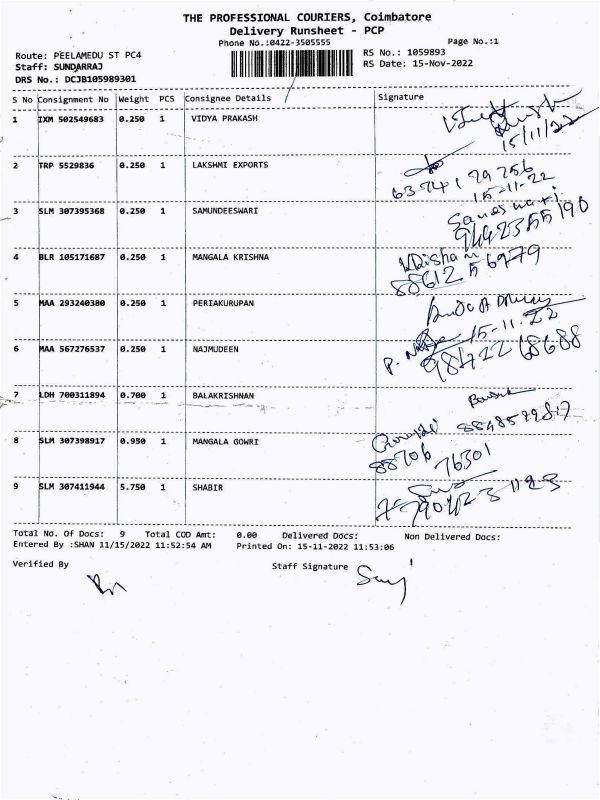 THE PROFESSIONAL COURIERS, Coimbatore
Delivery Runsheet - PCP
Phone No.:0422-3505555 Page No.:1
Route: PEELAMEDU ST PC4 RS No.: 1059893
Staff: SUNDARRAJ RS Date: 15-Nov-2022
DRS No.: DCJB105989301
S No Consignment No Weight PCS Consignee Details Signature
1 IXM 502549683 0.250 1 VIDYA PRAKASH
15/11/22
2 TRP 5529836 0.250 1 LAKSHMI EXPORTS
15-11-22
3 SLM 307395368 0.250 1 SAMUNDEESWARI
9442355190
4 BLR 105171687 0.250 1 MANGALA KRISHNA
88612 56979
5 MAA 293240380 0.250 1 PERIAKURUPAN
15-11-22
6 MAA 567276537 0.250 1 NAJMUDEEN
984722 68688
7 LDH 700311894 0.700 1 BALAKRISHNAN
8 SLM 307398917 0.950 1 MANGALA GOWRI
88706
76301
9 SLM 307411944 5.750 1 SHABIR
Total No. Of Docs: 9 Total COD Amt: 0.00 Delivered Docs: Non Delivered Docs:
Entered By :SHAN 11/15/2022 11:52:54 AM Printed On: 15-11-2022 11:53:06
Verified By Staff Signature